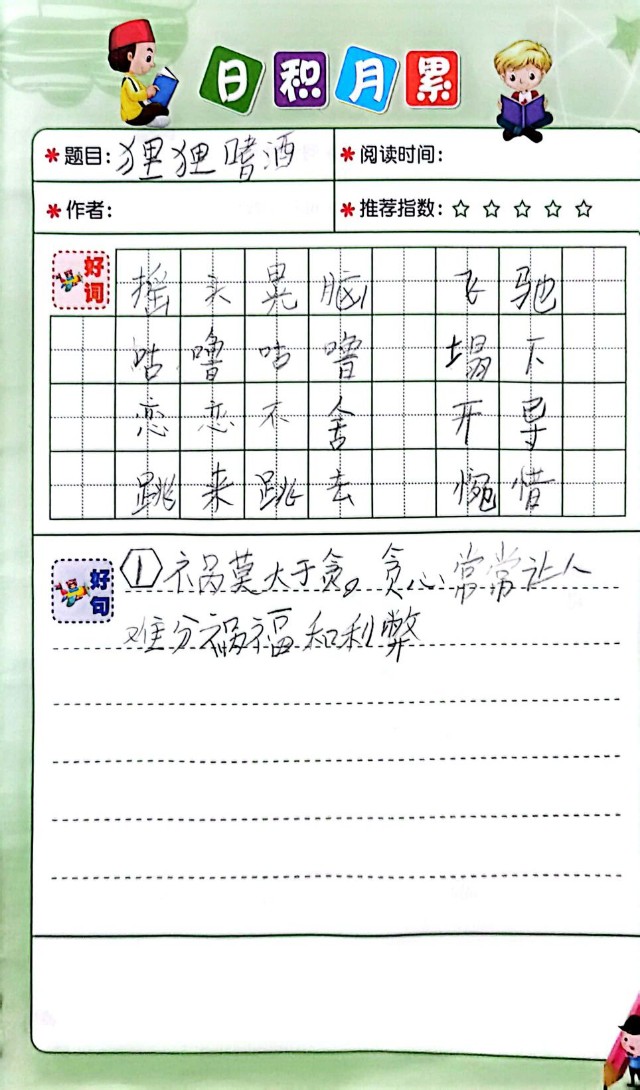 日积月累
题目:狸狸嗜酒 阅读时间:
作者: 推荐指数:☆☆☆☆☆
好词
摇头晃脑 飞驰
咕噜咕噜 塌下
恋恋不舍 开导
跳来跳去 惋惜
好句
①祸莫大于贪。贪心常常让人
难分祸福和利弊